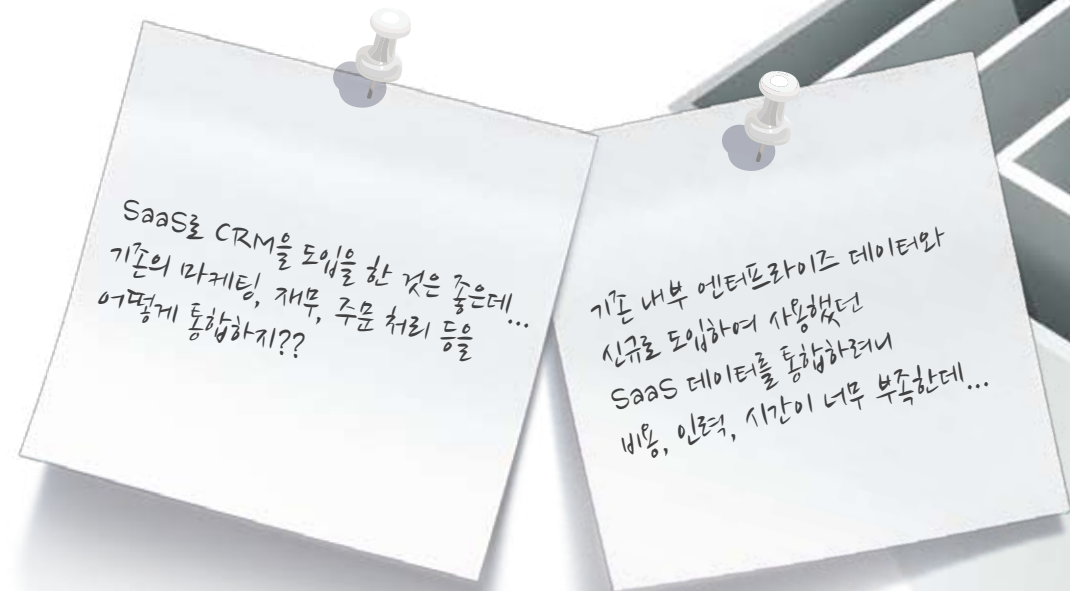 SaaS로 CRM을 도입을 한 것은 좋은데...
기존의 마케팅, 재무, 주문 처리 등을
어떻게 통합하지??
기존 내부 엔터프라이즈 데이터와
신규로 도입하여 사용했던
SaaS 데이터를 통합하려니
비용, 인력, 시간이 너무 부족한데...